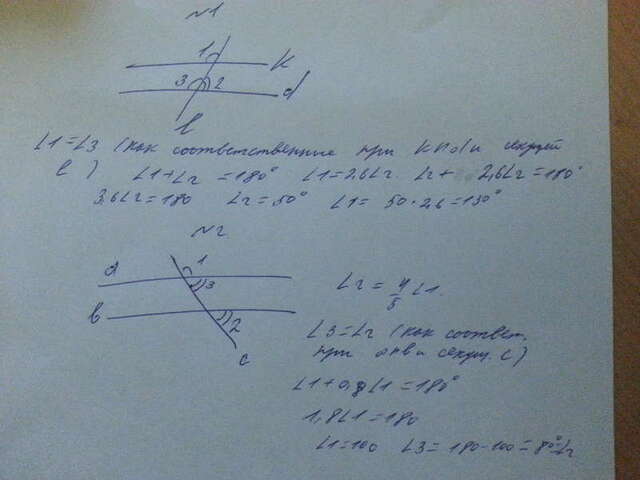 №1
1
k
3 2
d
l
∠1=∠3 (как соответственные при k∥d и секущей
l) ∠1+∠2=180° ∠1=2,6∠2. ∠2+2,6∠2=180°
3,6∠2=180 ∠2=50° ∠1=50·2,6=130°
№2
1
a
3
b
2
c
∠2=4/5∠1.
∠3=∠2 (как соответ.
при a∥b и секущ. c)
∠1+0,8∠1=180°
1,8∠1=180
∠1=100 ∠3=180-100=80°=∠2